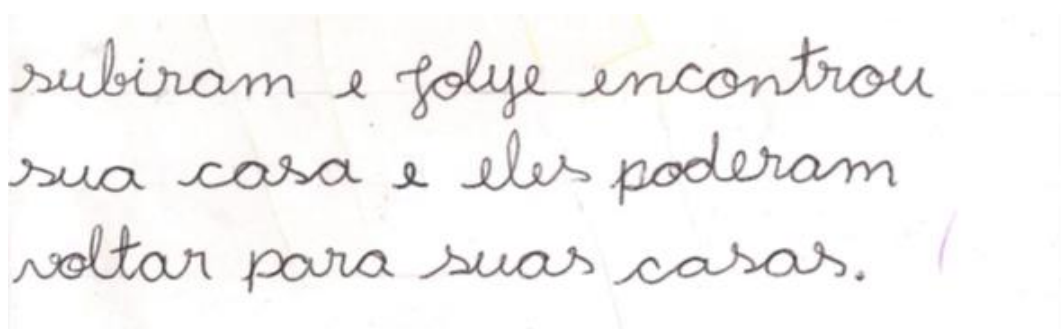 subiram e Jolye encontrou
sua casa e eles poderam
voltar para suas casas.